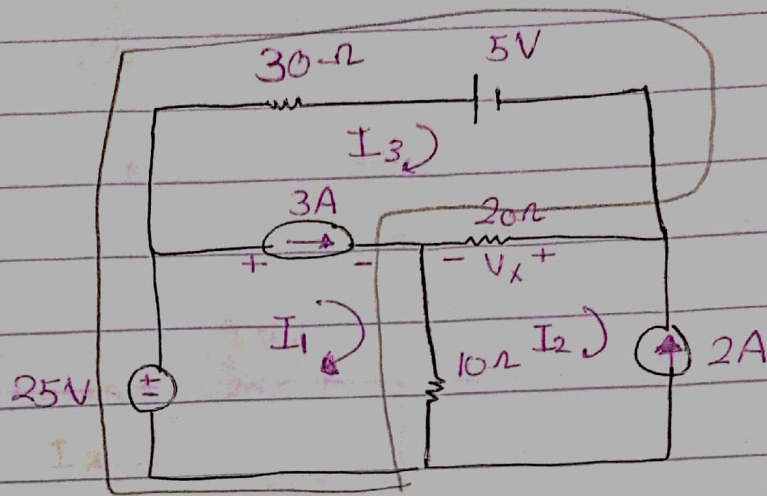 30Ω 5V
I3
3A 20Ω
+ - - Vx +
I1 10Ω I2 2A
25V ±